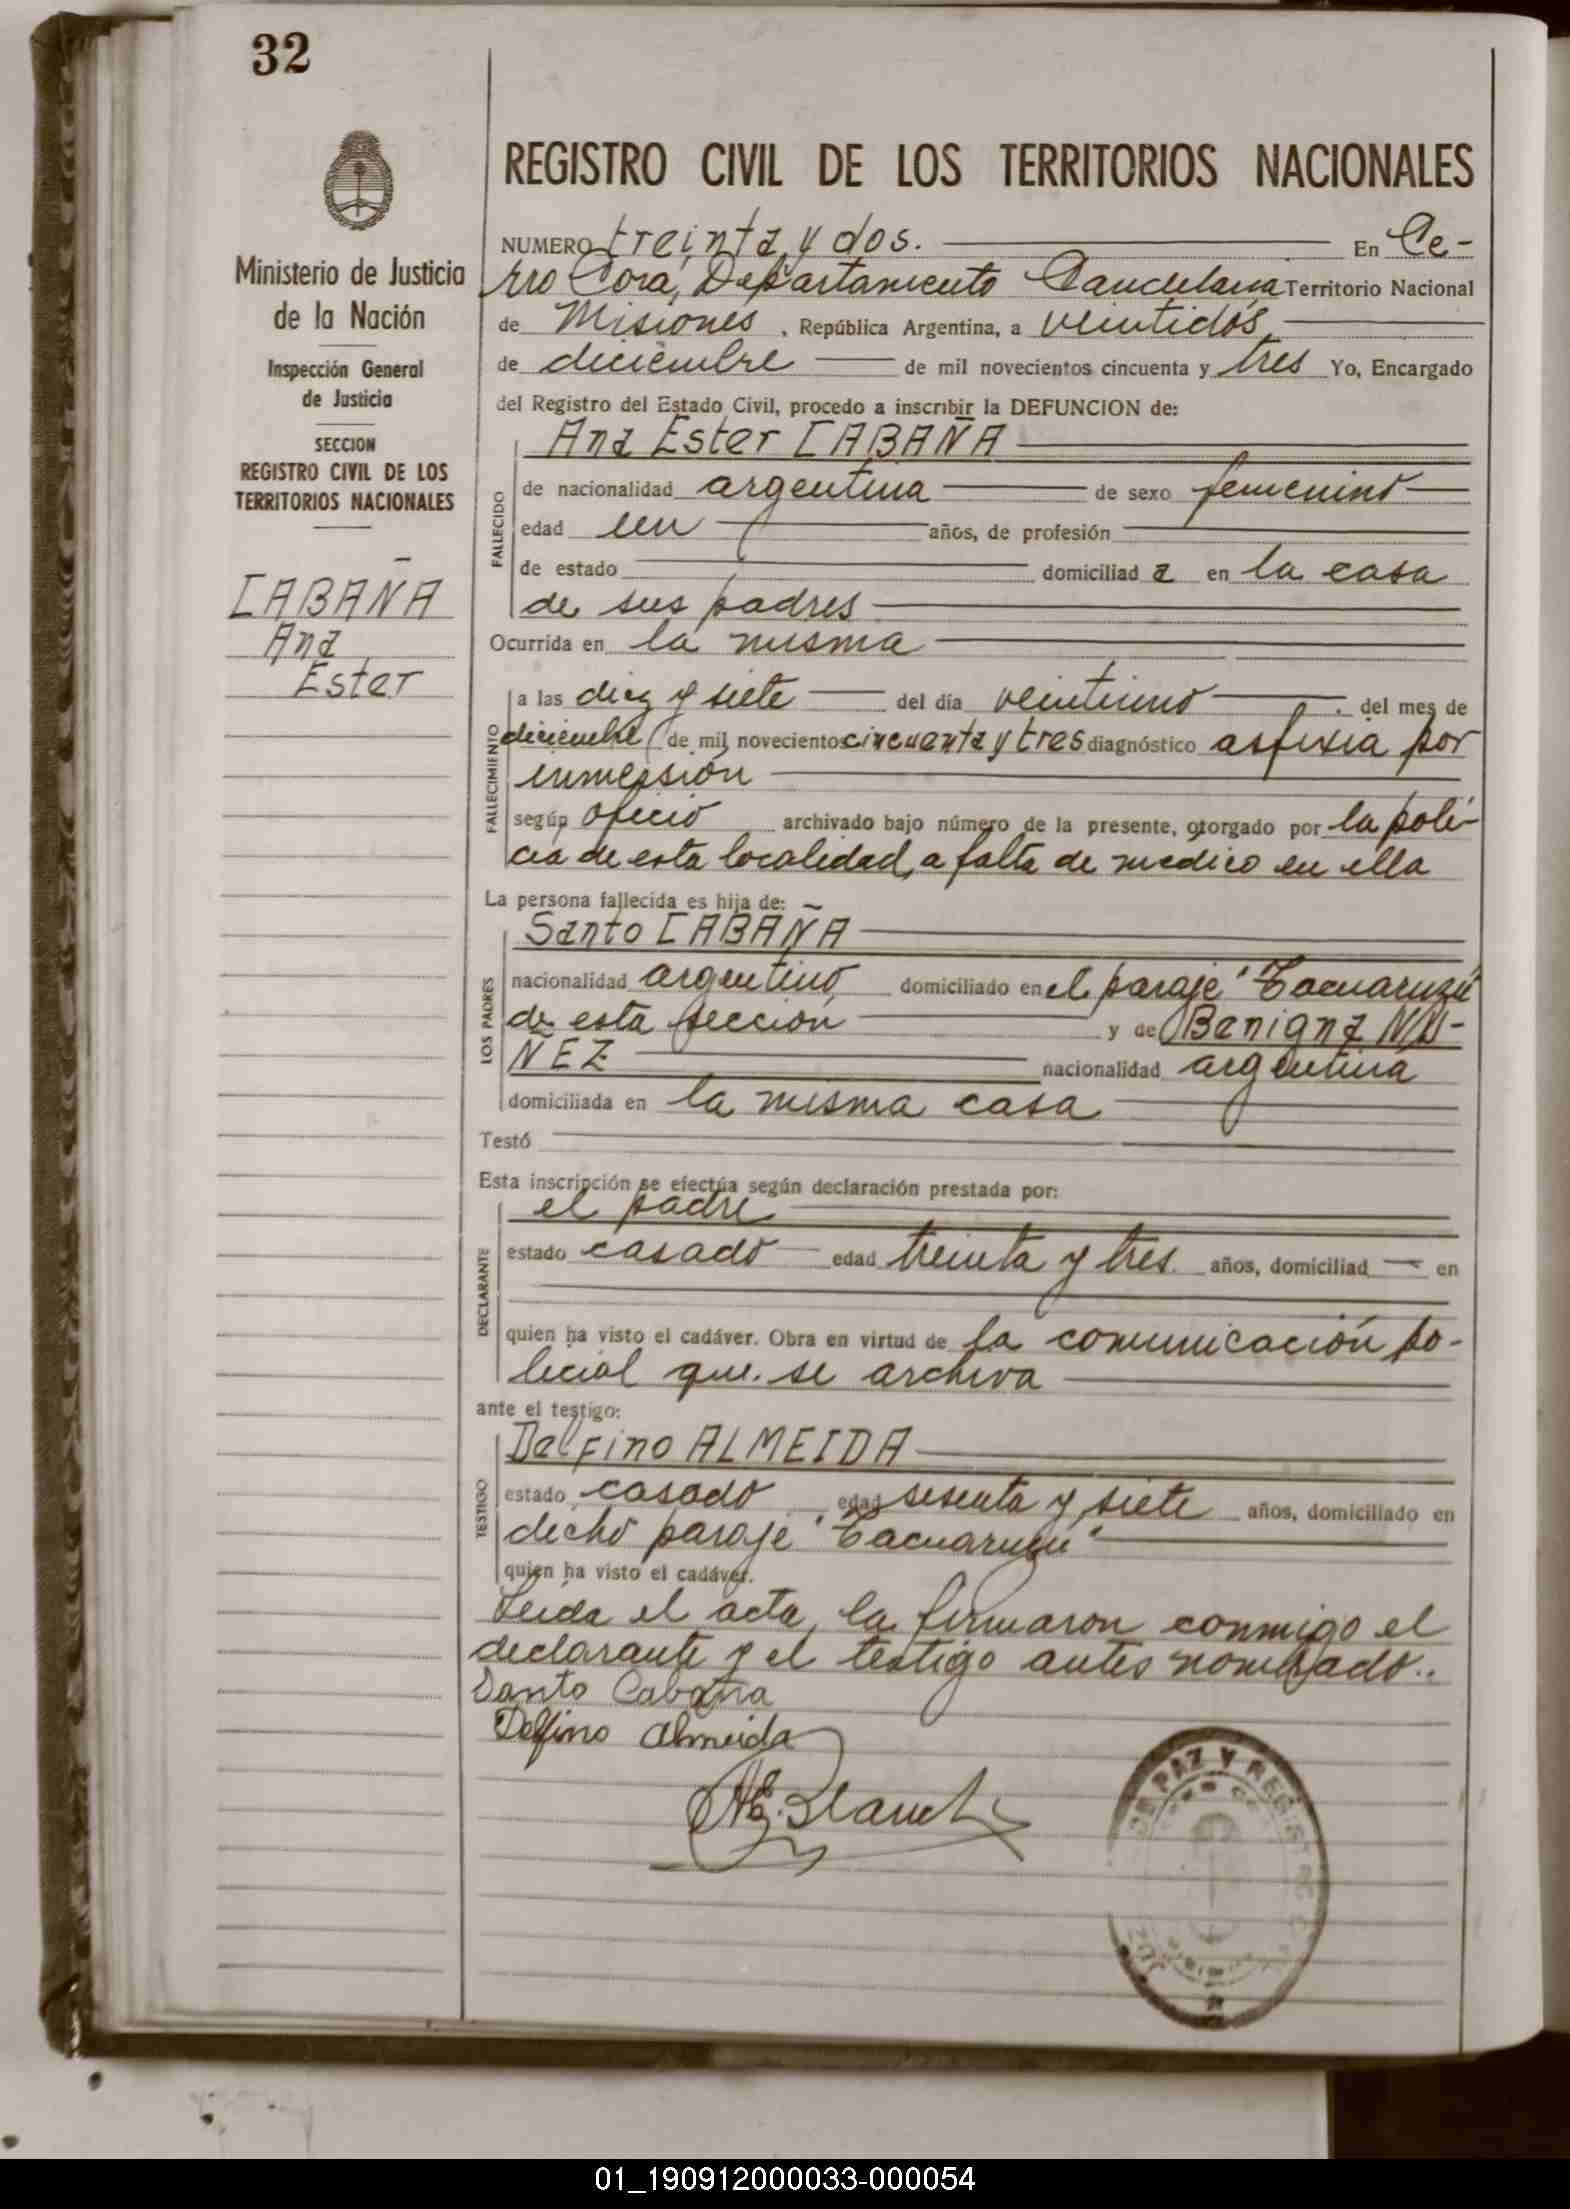 32
Ministerio de Justicia
de la Nación
Inspección General
de Justicia
SECCION
REGISTRO CIVIL DE LOS
TERRITORIOS NACIONALES
CABAÑA
Ana
Ester
REGISTRO CIVIL DE LOS TERRITORIOS NACIONALES
NUMERO treinta y dos. En Ce-
rro Corá, Departamento Candelaria Territorio Nacional
de Misiones, República Argentina, a veintidós
de diciembre de mil novecientos cincuenta y tres Yo, Encargado
del Registro del Estado Civil, procedo a inscribir la DEFUNCION de:
Ana Ester CABAÑA
FALLECIDO
de nacionalidad argentina de sexo femenino
edad un años, de profesión
de estado domiciliad a en la casa
de sus padres
Ocurrida en la misma
FALLECIMIENTO
a las diez y siete del día veintiuno del mes de
diciembre de mil novecientos cincuenta y tres diagnóstico asfixia por
inmersión
según oficio archivado bajo número de la presente, otorgado por la poli-
cía de esta localidad, a falta de médico en ella
La persona fallecida es hija de:
LOS PADRES
Santo CABAÑA
nacionalidad argentino domiciliado en el paraje "Tacuaruzú
de esta sección y de Benigna NU-
ÑEZ nacionalidad argentina
domiciliada en la misma casa
Testó
Esta inscripción se efectúa según declaración prestada por:
DECLARANTE
el padre
estado casado edad treinta y tres años, domiciliad en
quien ha visto el cadáver. Obra en virtud de la comunicación po-
licial que se archiva
ante el testigo:
TESTIGO
Delfino ALMEIDA
estado casado edad sesenta y siete años, domiciliado en
dicho paraje "Tacuaruzú"
quien ha visto el cadáver.
Leída el acta, la firmaron conmigo el
declarante y el testigo antes nombrado..
Santo Cabaña
Delfino Almeida
DE PAZ Y REGIST
JUZ
01_190912000033-000054